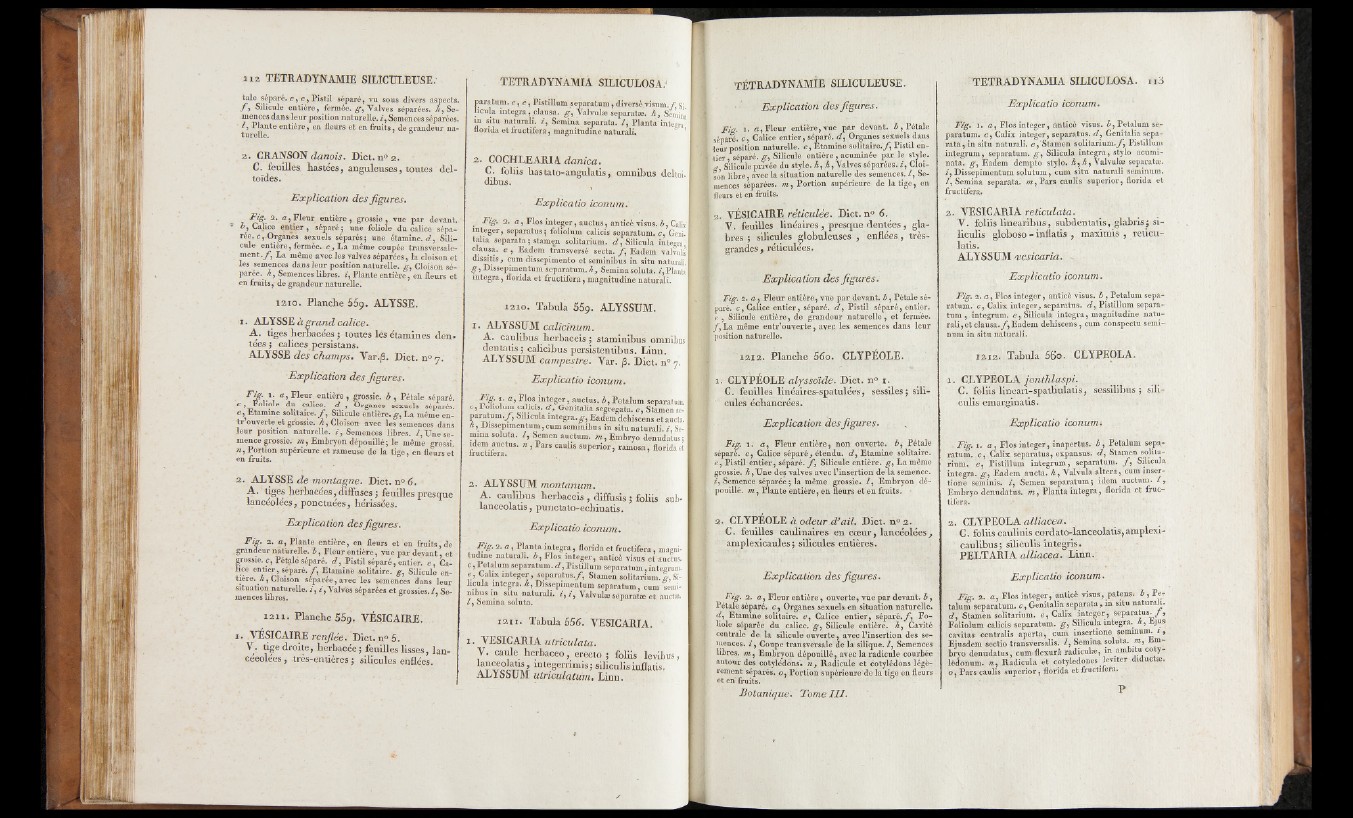 112 TETRADYNAMIE SILICULEUSE.
tale séparé. e, e, Pistil séparé, vu sous divers aspects.
f, Silicule entière, fermée. g, Valves séparées. h, Se-
mences dans leur position naturelle. i, Semences séparées.
l, Plante entière, en fleurs et en fruits, de grandeur na-
turelle.
2. CRANSON danois. Dict. nº 2.
C. feuilles hastées, anguleuses, toutes del-
toïdes.
Explication des figures.
Fig. 2. a, Fleur entière, grossie, vue par devant.
b, Calice entier, séparé; une foliole du calice sépa-
rée. c, Organes sexuels séparés; une étamine. d, Sili-
cule entière, fermée. e, La même coupée transversale-
ment. f, La même avec les valves séparées, la cloison et
les semences dans leur position naturelle. g, Cloison sé-
parée. h, Semences libres. i, Plante entière, en fleurs et
en fruits, de grandeur naturelle.
1210. Planche 559. ALYSSE.
1. ALYSSE à grand calice.
A. tiges herbacées; toutes les étamines den-
tées; calices persistans.
ALYSSE des champs. Var. β. Dict. nº 7.
Explication des figures.
Fig. 1. a, Fleur entière, grossie. b, Pétale séparé.
c, Foliole du calice. d, Organes sexuels séparés.
e, Etamine solitaire. f, Silicule entière. g, La même en-
tr'ouverte et grossie. h, Cloison avec les semences dans
leur position naturelle. i, Semences libres. l, Une se-
mence grossie. m, Embryon dépouillé; le même grossi.
n, Portion supérieure et rameuse de la tige, en fleurs et
en fruits.
2. ALYSSE de montagne. Dict. nº 6.
A. tiges herbacées, diffuses; feuilles presque
lancéolées, ponctuées, hérissées.
Explication des figures.
Fig. 2. a, Plante entière, en fleurs et en fruits, de
grandeur naturelle. b, Fleur entière, vue par devant, et
grossie. c, Pétale séparé. d, Pistil séparé, entier. e, Ca-
lice entier, séparé. f, Etamine solitaire. g, Silicule en-
tière. h, Cloison séparée, avec les semences dans leur
situation naturelle. i, i, Valves séparées et grossies. l, Se-
mences libres.
1211. Planche 559. VÉSICAIRE.
1. VÉSICAIRE renflée. Dict. nº 5.
V. tige droite, herbacée; feuilles lisses, lan-
céolées, très-entières; silicules enflées.
TETRADYNAMIA SILICULOSA.
paratum. e, e, Pistillum separatum, diversè visum. f, Si-
licula integra, clausa. g, Valvulæ separatæ. h, Semina
in situ naturali. i, Semina separata. l, Planta integra,
florida et fructifera, magnitudine naturali.
2. COCHLEARIA danica.
C. foliis hastato-angulatis, omnibus deltoi-
dibus.
Explicatio iconum.
Fig. 2. a, Flos integer, auctus, anticè visus. b, Calix
integer, separatus; foliolum calicis separatum. c, Geni-
talia separata; stamen solitarium. d, Silicula integra,
clausa. e, Eadem transversè secta. f, Eadem valvulis
dissitis, cum dissepimento et seminibus in situ naturali.
g, Dissepimentum separatum. h, Semina soluta. i, Planta
integra, florida et fructifera, magnitudine naturali.
1210. Tabula 559. ALYSSUM.
1. ALYSSUM calicinum.
A. caulibus herbaceis; staminibus omnibus
dentatis; calicibus persistentibus. Linn.
ALYSSUM campestre. Var. β. Dict. nº 7.
Explicatio iconum.
Fig. 1. a, Flos integer, auctus. b, Petalum separatum.
c, Foliolum calicis. d, Genitalia segregata. e, Stamen se-
paratum. f, Silicula integra. g, Eadem dehiscens et aucta.
h, Dissepimentum, cum seminibus in situ naturali. i, Se-
mina soluta. l, Semen auctum. m, Embryo denudatus;
idem auctus. n, Pars caulis superior, ramosa, florida et
fructifera.
2. ALYSSUM montanum.
A. caulibus herbaceis, diffusis; foliis sub-
lanceolatis, punctato-echinatis.
Explicatio iconum.
Fig. 2. a, Planta integra, florida et fructifera, magni-
tudine naturali. b, Flos integer, anticè visus et auctus.
c, Petalum separatum. d, Pistillum separatum, integrum.
e, Calix integer, separatus. f, Stamen solitarium. g, Si-
licula integra. h, Dissepimentum separatum, cum semi-
nibus in situ naturali. i, i, Valvulæ separatæ et auctæ.
l, Semina soluta.
1211. Tabula 556. VESICARIA.
1. VESICARIA utriculata.
V. caule herbaceo, erecto; foliis levibus,
lanceolatis, integerrimis; siliculis inflatis.
ALYSSUM utriculatum. Linn.
TÉTRADYNAMIE SILICULEUSE.
Explication des figures.
Fig. 1. a, Fleur entière, vue par devant. b, Pétale
séparé. c, Calice entier, séparé. d, Organes sexuels dans
leur position naturelle. e, Etamine solitaire. f, Pistil en-
tier, séparé. g, Silicule entière, acuminée par le style.
g, Silicule privée du style. h, h, Valves séparées. i, Cloi-
son libre, avec la situation naturelle des semences. l, Se-
mences séparées. m, Portion supérieure de la tige, en
fleurs et en fruits.
2. VÉSICAIRE réticulée. Dict. nº 6.
V. feuilles linéaires, presque dentées, gla-
bres; silicules globuleuses, enflées, très-
grandes, réticulées.
Explication des figures.
Fig. 2. a, Fleur entière, vue par devant. b, Pétale sé-
paré. c, Calice entier, séparé. d, Pistil séparé, entier.
e, Silicule entière, de grandeur naturelle, et fermée.
f, La même entr'ouverte, avec les semences dans leur
position naturelle.
1212. Planche 560. CLYPÉOLE.
1. CLYPÉOLE alyssoïde. Dict. nº 1.
C. feuilles linéaires-spatulées, sessiles; sili-
cules échancrées.
Explication des figures.
Fig. 1. a, Fleur entière, non ouverte. b, Pétale
séparé. c, Calice séparé, étendu. d, Etamine solitaire.
e, Pistil entier, séparé. f, Silicule entière. g, La même
grossie. h, Une des valves avec l'insertion de la semence.
i, Semence séparée; la même grossie. l, Embryon dé-
pouillé. m, Plante entière, en fleurs et en fruits.
2. CLYPÉOLE à odeur d'ail. Dict. nº 2.
C. feuilles caulinaires en cœur, lancéolées,
amplexicaules; silicules entières.
Explication des figures.
Fig. 2. a, Fleur entière, ouverte, vue par devant. b,
Pétale séparé. c, Organes sexuels en situation naturelle.
d, Etamine solitaire. e, Calice entier, séparé. f, Fo-
liole séparée du calice. g, Silicule entière. h, Cavité
centrale de la silicule ouverte, avec l'insertion des se-
mences. i, Coupe transversale de la silique. l, Semences
libres. m, Embryon dépouillé, avec la radicule courbée
autour des cotylédons. n, Radicule et cotylédons légè-
rement séparés. o, Portion supérieure de la tige en fleurs
et en fruits.
Botanique. Tome III.
TETRADYNAMIA SILICULOSA. 113
Explicatio iconum.
Fig. 1. a, Flos integer, anticè visus. b, Petalum se-
paratum. c, Calix integer, separatus. d, Genitalia sepa-
rata, in situ naturali. e, Stamen solitarium. f, Pistillum
integrum, separatum. g, Silicula integra, stylo acumi-
nata. g, Eadem dempto stylo. h, h, Valvulæ separatæ.
i, Dissepimentum solutum, cum situ naturali seminum.
l, Semina separata. m, Pars caulis superior, florida et
fructifera.
2. VESICARIA reticulata.
V. foliis linearibus, subdentatis, glabris; si-
liculis globoso-inflatis, maximis, reticu-
latis.
ALYSSUM vesicaria.
Explicatio iconum.
Fig. 2. a, Flos integer, anticè visus. b, Petalum sepa-
ratum. c, Calix integer, separatus. d, Pistillum separa-
tum, integrum. e, Silicula integra, magnitudine natu-
rali, et clausa. f, Eadem dehiscens, cum conspectu semi-
num in situ naturali.
1212. Tabula 560. CLYPEOLA.
1. CLYPEOLA jonthlaspi.
C. foliis lineari-spathulatis, sessilibus; sili-
culis emarginatis.
Explicatio iconum.
Fig. 1. a, Flos integer, inapertus. b, Petalum sepa-
ratum. c, Calix separatus, expansus. d, Stamen solita-
rium. e, Pistillum integrum, separatum. f, Silicula
integra. g, Eadem aucta. h, Valvula altera, cum inser-
tione seminis. i, Semen separatum; idem auctum. l,
Embryo denudatus. m, Planta integra, florida et fruc-
tifera.
2. CLYPEOLA alliacea.
C. foliis caulinis cordato-lanceolatis, amplexi-
caulibus; siliculis integris.
PELTARIA alliacea. Linn.
Explicatio iconum.
Fig. 2. a, Flos integer, anticè visus, patens. b, Pe-
talum separatum. c, Genitalia separata, in situ naturali.
d, Stamen solitarium. e, Calix integer, separatus. f,
Foliolum calicis separatum. g, Silicula integra. h, Ejus
cavitas centralis aperta, cum insertione seminum. i,
Ejusdem sectio transversalis. l, Semina soluta. m, Em-
bryo denudatus, cum flexurâ radiculæ, in ambitu coty-
lédonum. n, Radicula et cotyledones leviter diductæ.
o, Pars caulis superior, florida et fructifera.
P